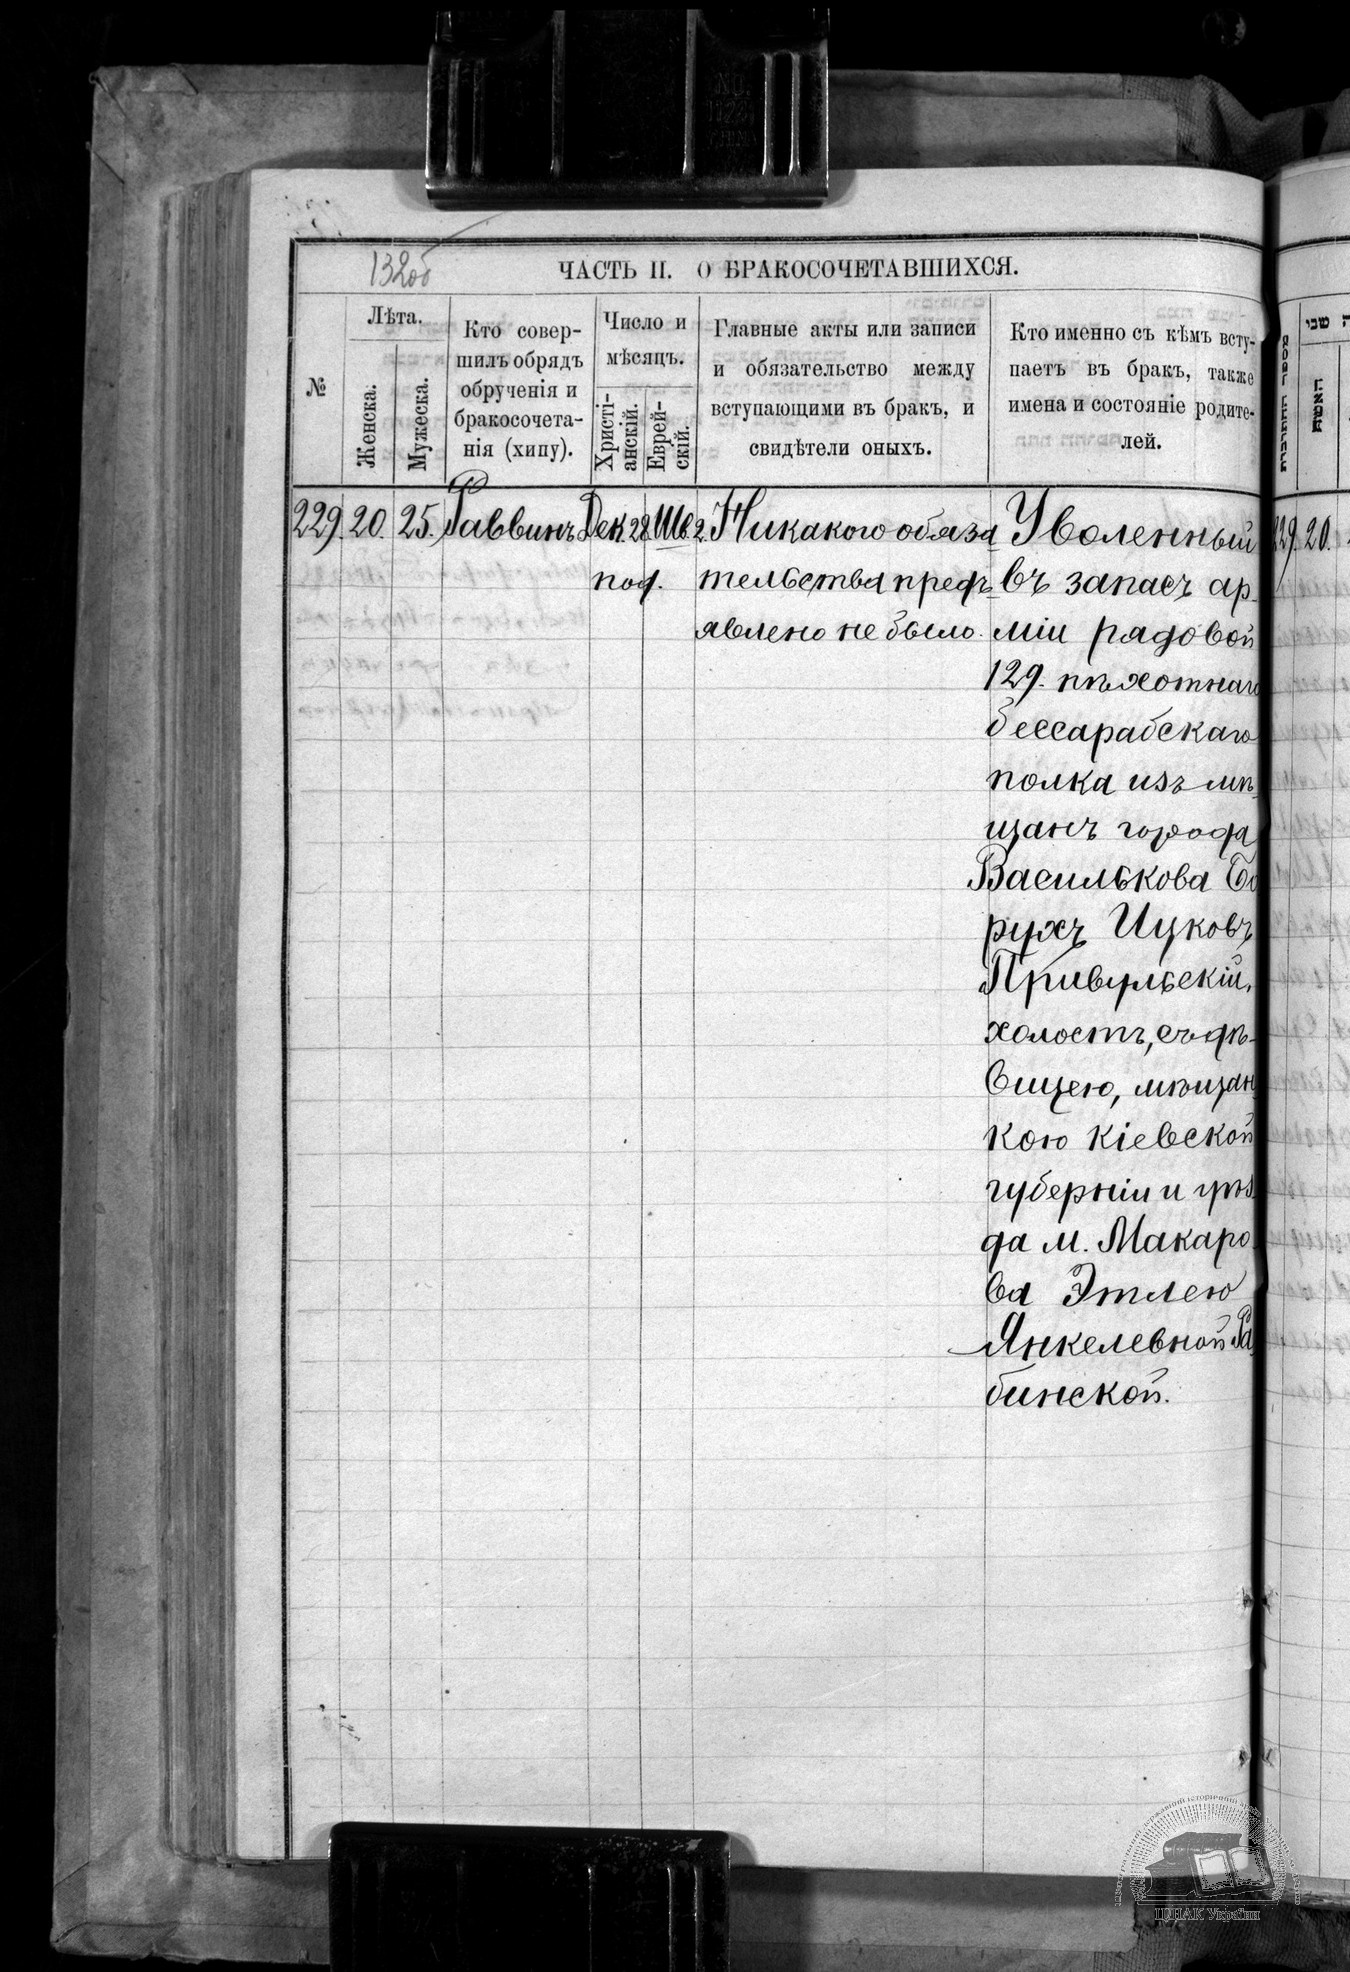 132об
ЧАСТЬ II. О БРАКОСОЧЕТАВШИХСЯ.
№
Лѣта.
Женска.
Мужеска.
Кто совер-
шилъ обрядъ
обрученія и
бракосочета-
нія (хипу).
Число и
мѣсяцъ.
Христі-
анскій.
Еврей-
скій.
Главные акты или записи
и обязательство между
вступающими въ брак, и
свидѣтели оныхъ.
Кто именно съ кѣмъ всту-
паетъ въ бракъ, также
имена и состояніе родите-
лей.
229. 20. 25. Раввинъ Дек. 28. Шв. 2. Никакого обяза Уволенный
под. тельства предъ- въ запасъ ар-
явлено не было. міи рядовой
129. пѣхотнаго
бессарабскаго
полка изъ мѣ-
щанъ города
Василькова Бо
рухъ Ицковъ
Привульскій,
холостъ, съ дѣ-
вицею, мѣщан
кою кіевской
губерніи и уѣз
да м. Макаро
ва Этлею
Янкелевной Ра
бинской.
שני
האשה
229. 20.
ЦДІАК України